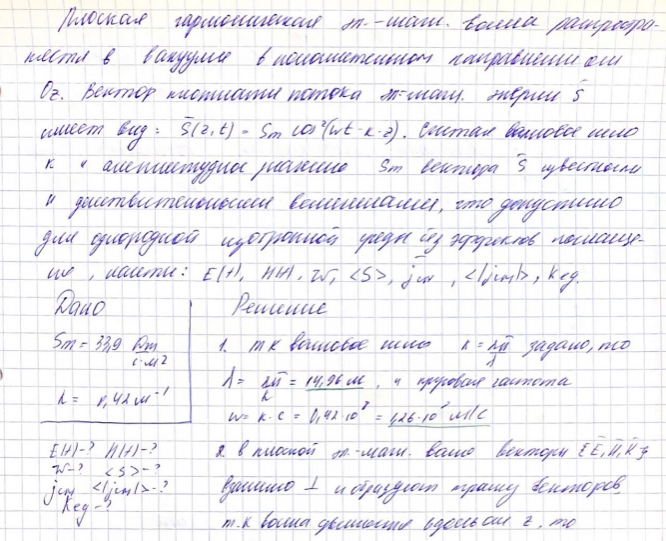 Плоская гармоническая эл.-маг. волна распростра-
няется в вакууме в положительном направлении оси
Oz. Вектор плотности потока эл-маг. энергии S̄
имеет вид: S̄(z,t) = Sm cos²(wt-k·z). Считая волновое число
k и амплитудное значение Sm вектора S̄ известными
и действительными величинами, что допустимо
для однородной изотропной среды без эффектов поглоще-
ния, найти: E(t), H(t), w, <S>, jсм, <|jсм|>, Kед.
Дано
Решение
Sm = 33,9 Дж/с·м²
k = 0,42 м⁻¹
E(t)-? H(t)-?
w-? <S>-?
jсм <|jсм|>-?
Kед-?
1. т.к волновое число k = 2π/λ задано, то
λ = 2π/k = 14,96 м, и круговая частота
w = k·c = 0,42·10⁸ = 1,26·10⁸ м/с
2. в плоской эл-маг. волне векторы {Ē, H̄, K̄}
взаимно ⊥ и образуют правую векторов
т.к волна движется вдоль оси z, то